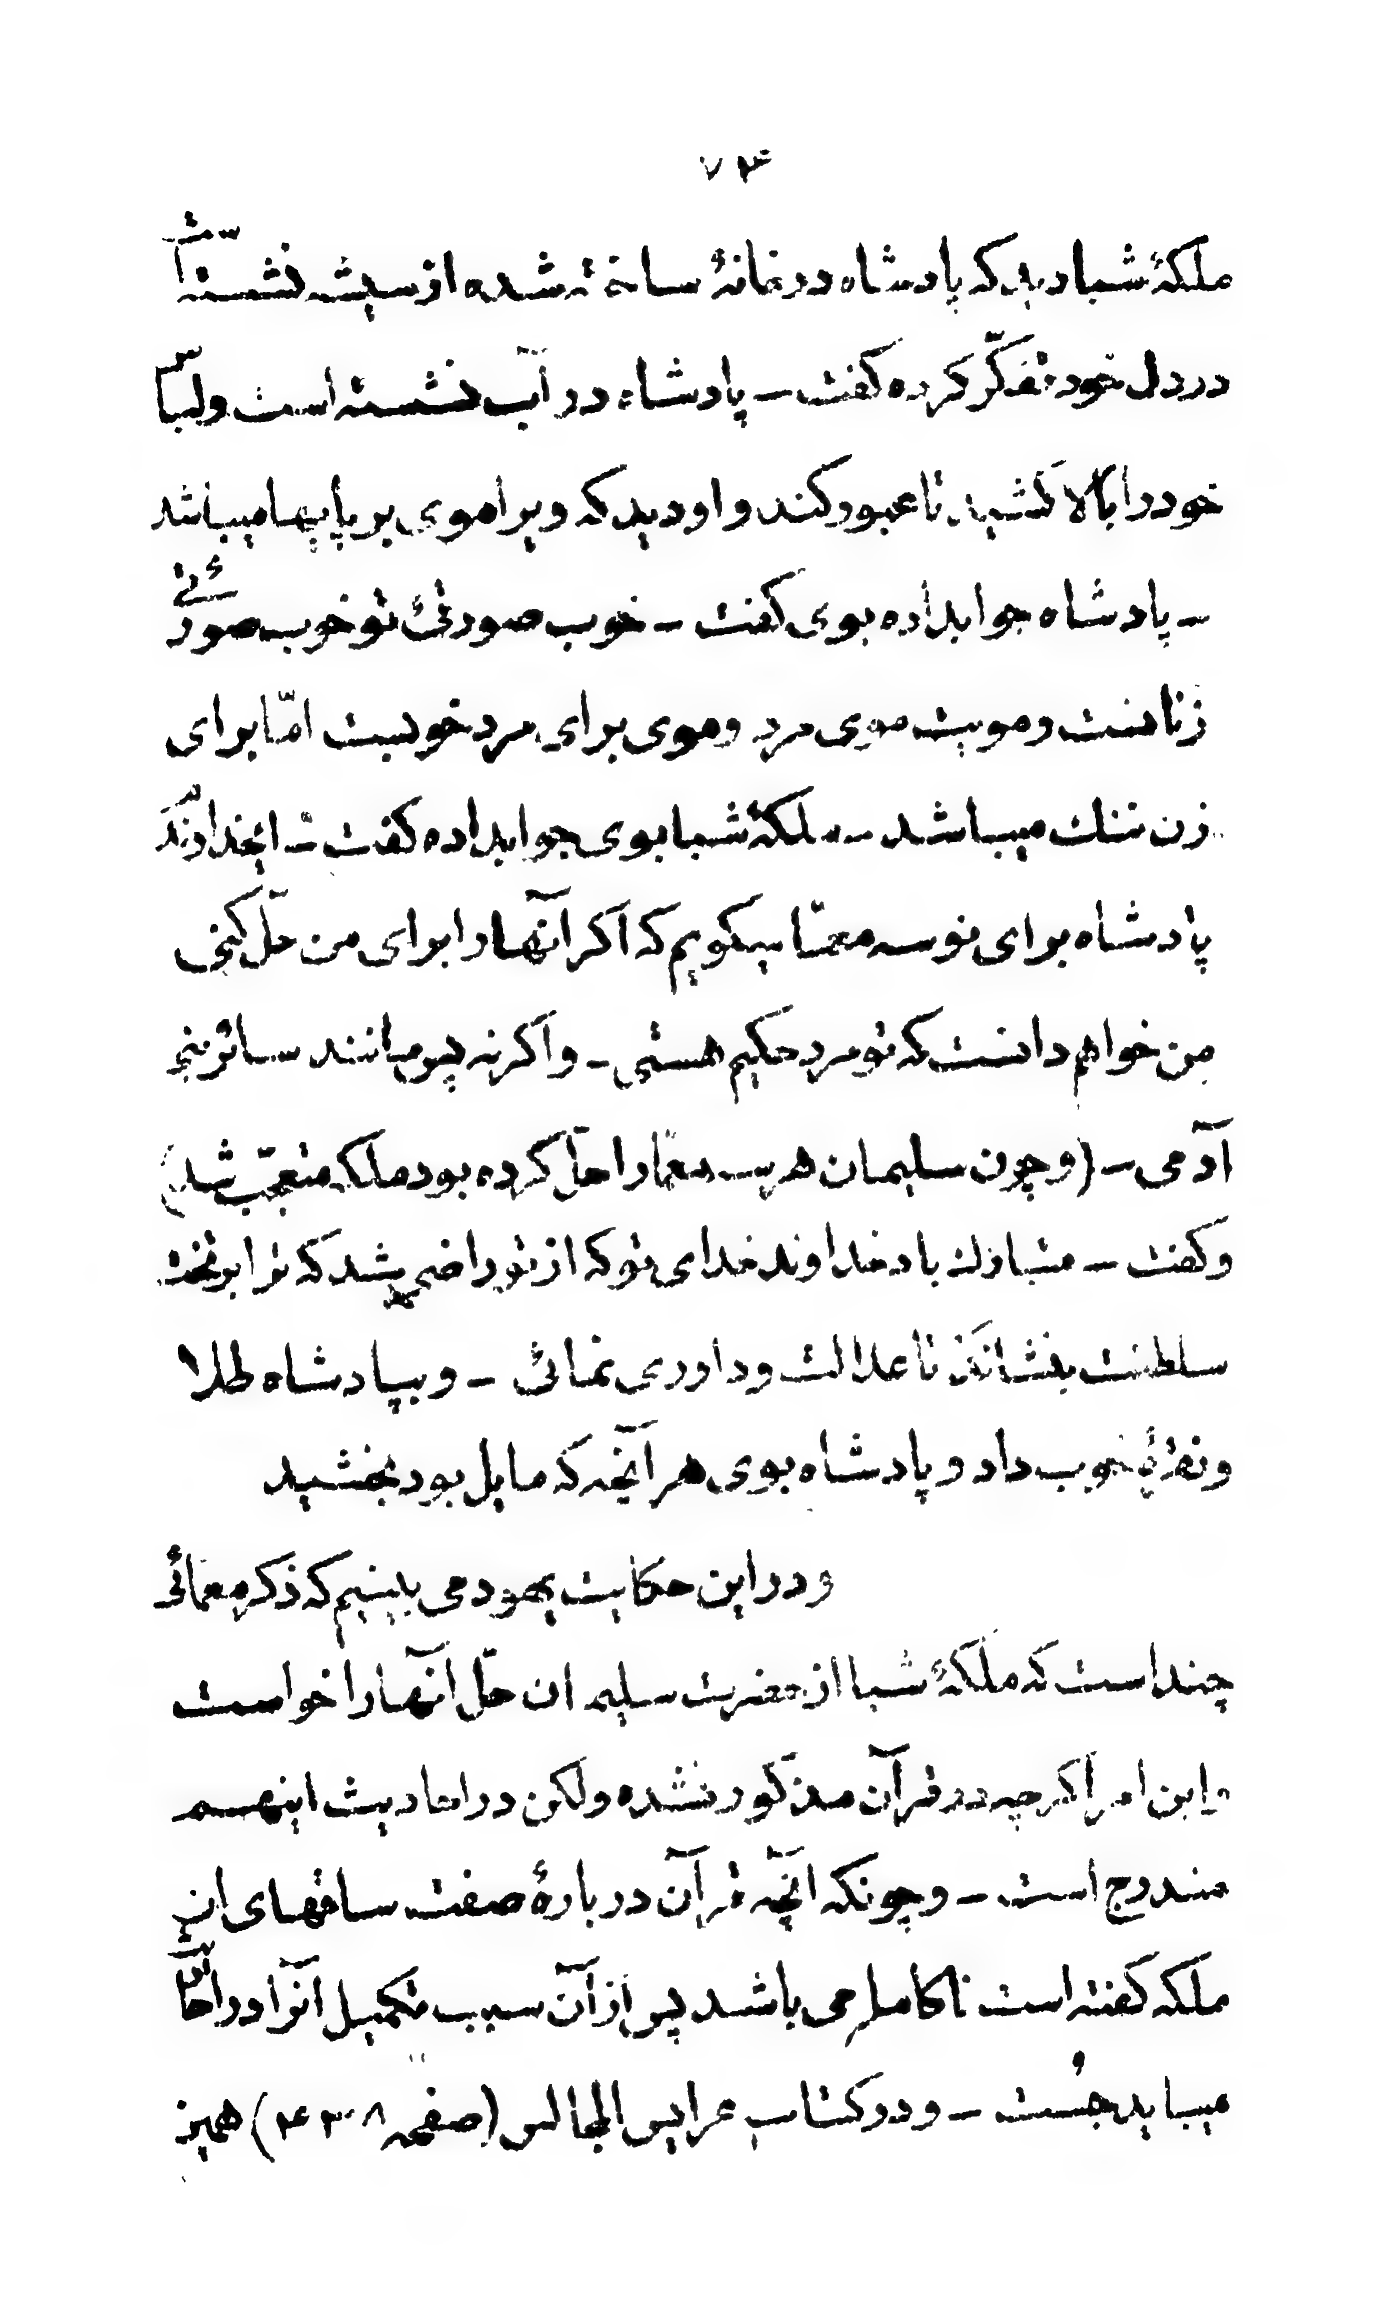 ۷۴
ملکهٔ شبا دید که پادشاه در خانهٔ ساخته شده از شیشه نشسته است
در دل خود تفکّر کرده کفت – پادشاه در آب نشسته است ولباس
خود را بالا کشید تا عبور کند و او دید که ویرا موی بر پایها میباشد
– پادشاه جوابداده بوی کفت – خوب صورتیٔ تو خوب صورتیٔ
زنانست و مویت موی مرد و موی برای مرد خوبست امّا برای
زن ننك میباشد – ملکهٔ شبا بوی جوابداده کفت – ایخداوند
پادشاه برای تو سه معمّا میکویم که اکر آنها را برای من حلّ کنی
من خواهم دانست که تو مرد حکیم هستی – و اکرنه پس مانند سائر بنی
آدمی – (و چون سلیمان هر سه معمّا را حلّ کرده بود ملکه متعجّب شد)
و کفت – متبارك باد خداوند خدای تو که از تو راضی شد که ترا بر تخت
سلطنت بنشاند تا عدالت و داوری نمائی – و بپادشاه طلا
و نقرهٔ خوب داد و پادشاه بوی هر آنچه که مایل بود بخشید
و در این حکایت یهود می بینیم که ذکر معمّائی
چند است که ملکهٔ شبا از حضرت سلیمان حلّ آنها را خواست
و این امر اکرچه در قرآن مذکور نشده ولکن در احادیث اینهم
مندرج است – و چونکه آنچه قرآن در بارهٔ صفت ساقهای آن
ملکه کفته است ناکامل می باشد پس از آن سبب تکمیل آنرا در احادیث
میباید جُست – و در کتاب عرایس المجالس (صفحه ۴۳۰۸) همین